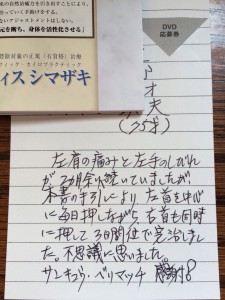 来の自然治癒力を引き出すことにより、
ていく手助けをする。
ないアジャストメントはしない。
元を断ち、身体を活性化させる」
(有資格) 治療
フィック・カイロプラクティック
ィス シマザキ
DVD
応募券
才夫
左肩の痛みと左手のしびれ
が2ヶ月余り続いていましたが
本書の手引により左首を中心
に毎日押しながら右首も同時
に押して3日間位で完治しまし
た。不思議に思いました。
サンキュウ・ベリマッチ 感謝!